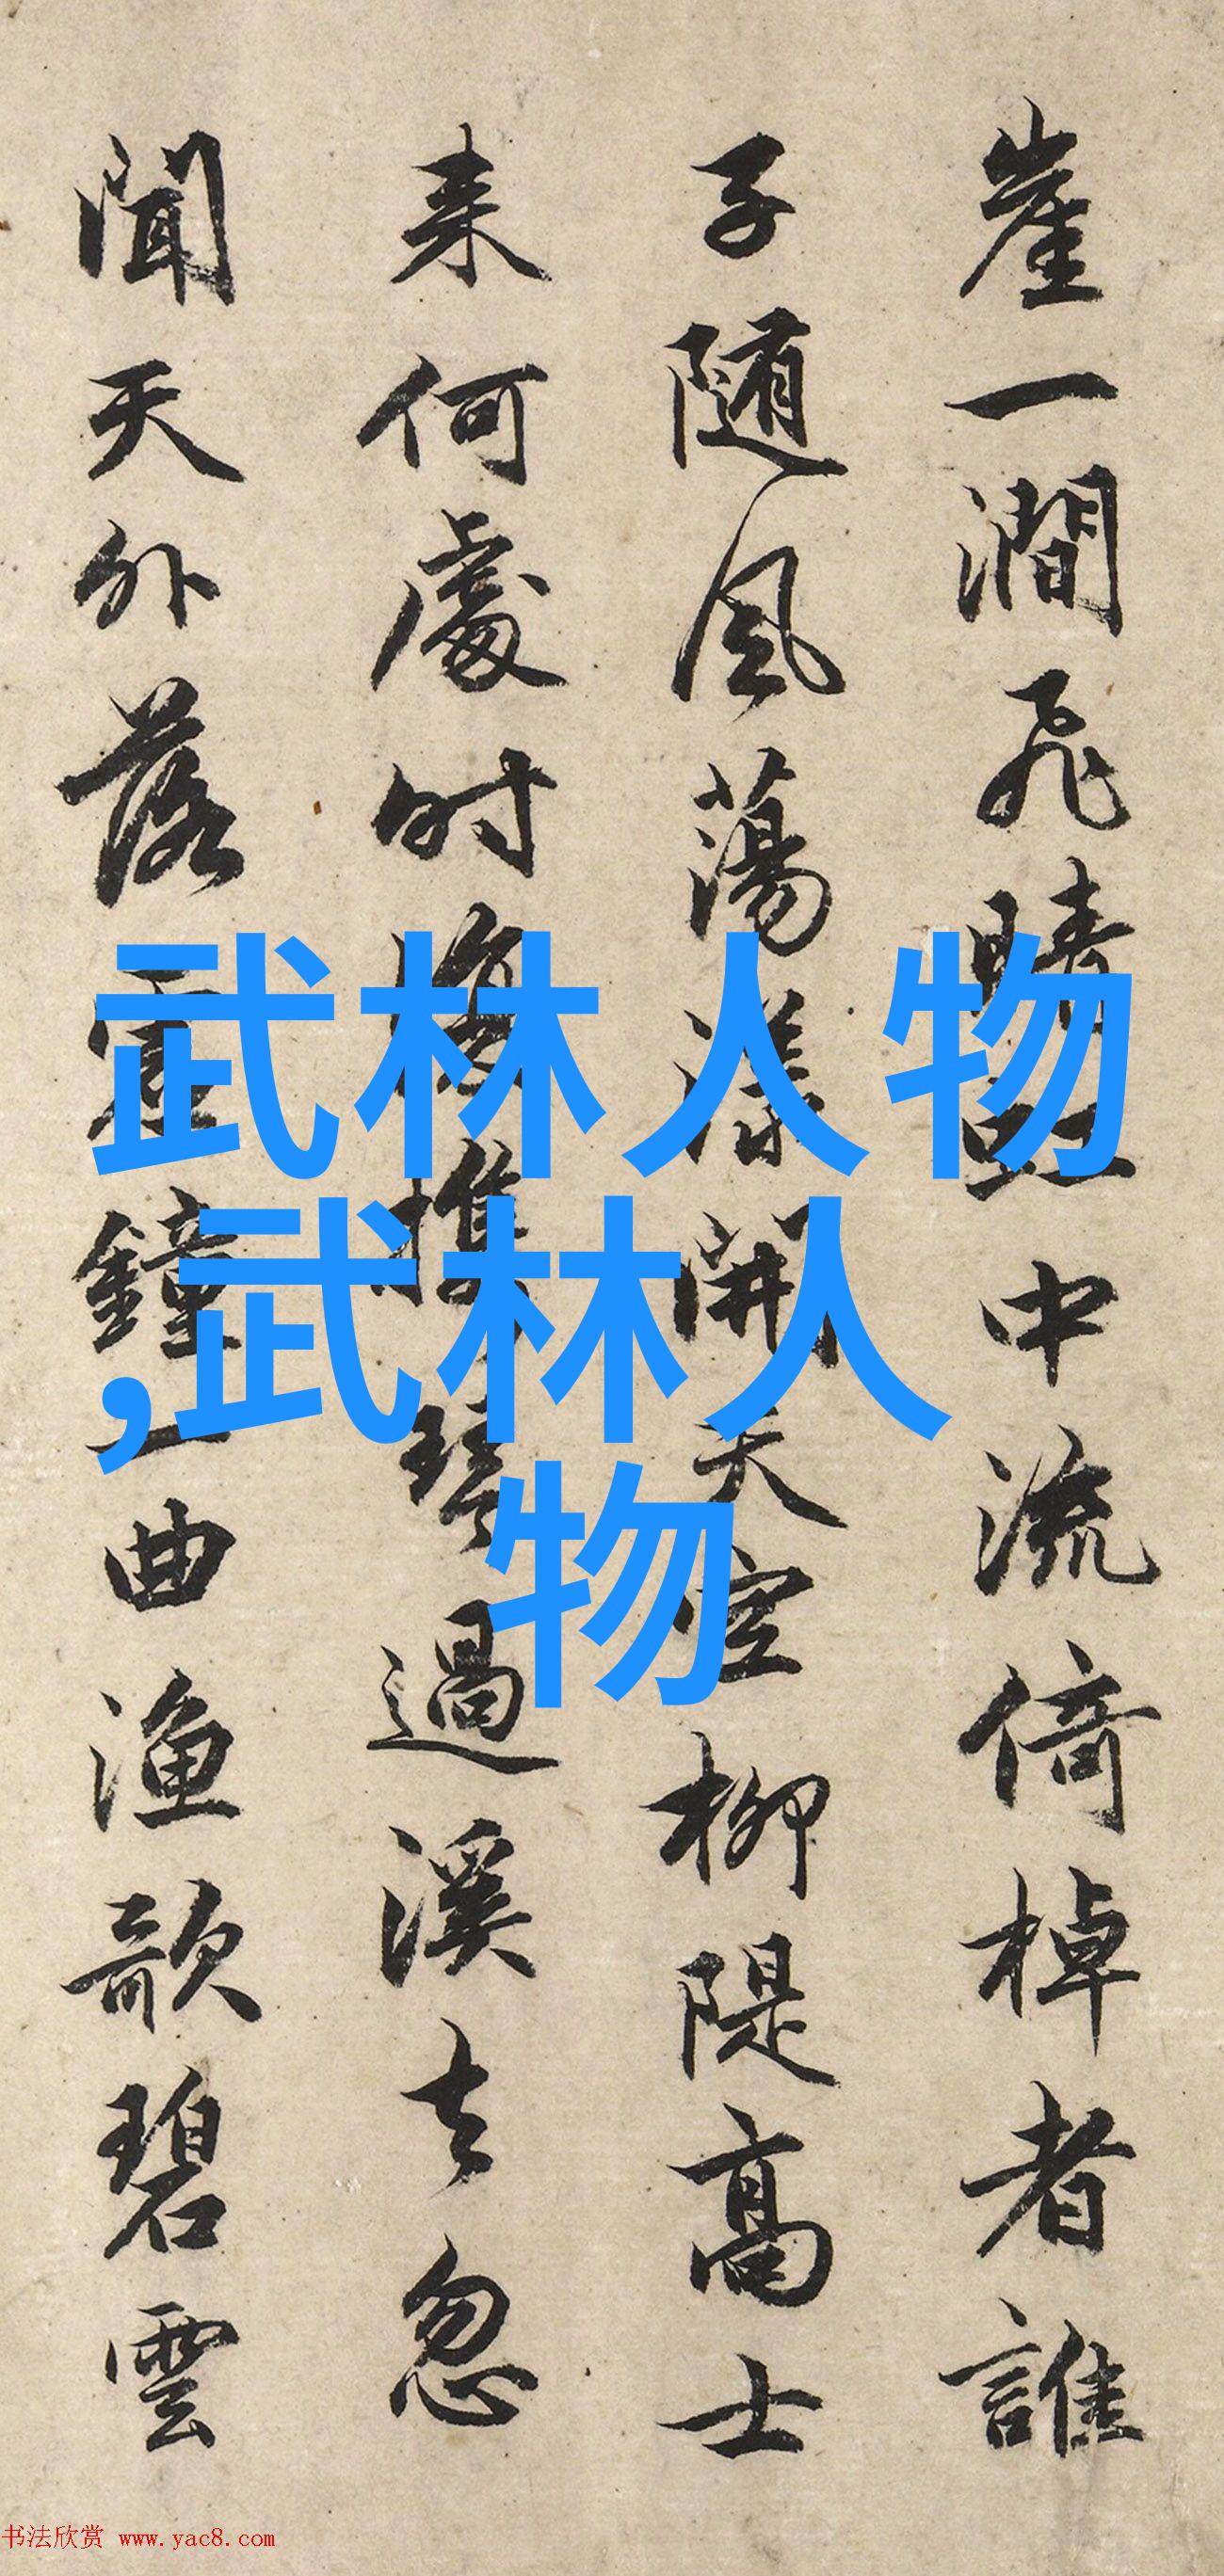 崖一澗飛晴照中流倚棹者誰
子随風蕩漾開天空柳隄高士
来何處時携琴過溪去忽
聞天外落靈鐘一曲漁歌碧雲
武林人物
,武林人
物
书法欣赏 www.yac8.com